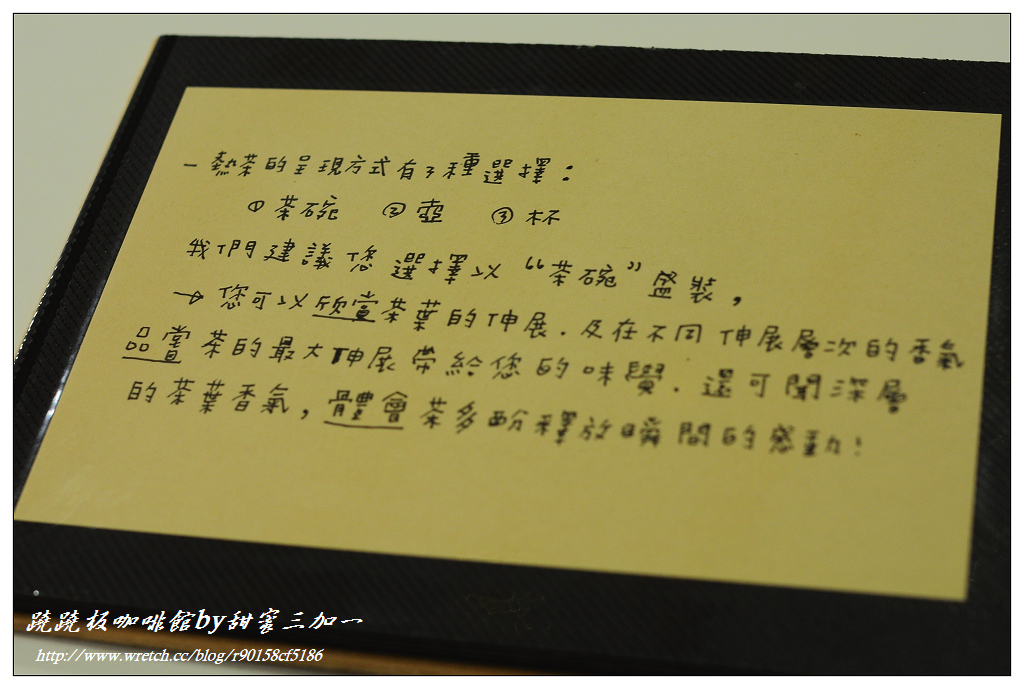 －熱茶的呈現方式有3種選擇：
①茶碗　②壺　③杯
我們建議您選擇以“茶碗”盛裝，
→您可以欣賞茶葉的伸展．及在不同伸展層次的香氣
品嘗茶的最大伸展帶給您的味覺．還可聞深層
的茶葉香氣，體會茶多酚釋放瞬間的感動！
蹺蹺板咖啡館by甜蜜三加一
http://www.wretch.cc/blog/r90158cf5186